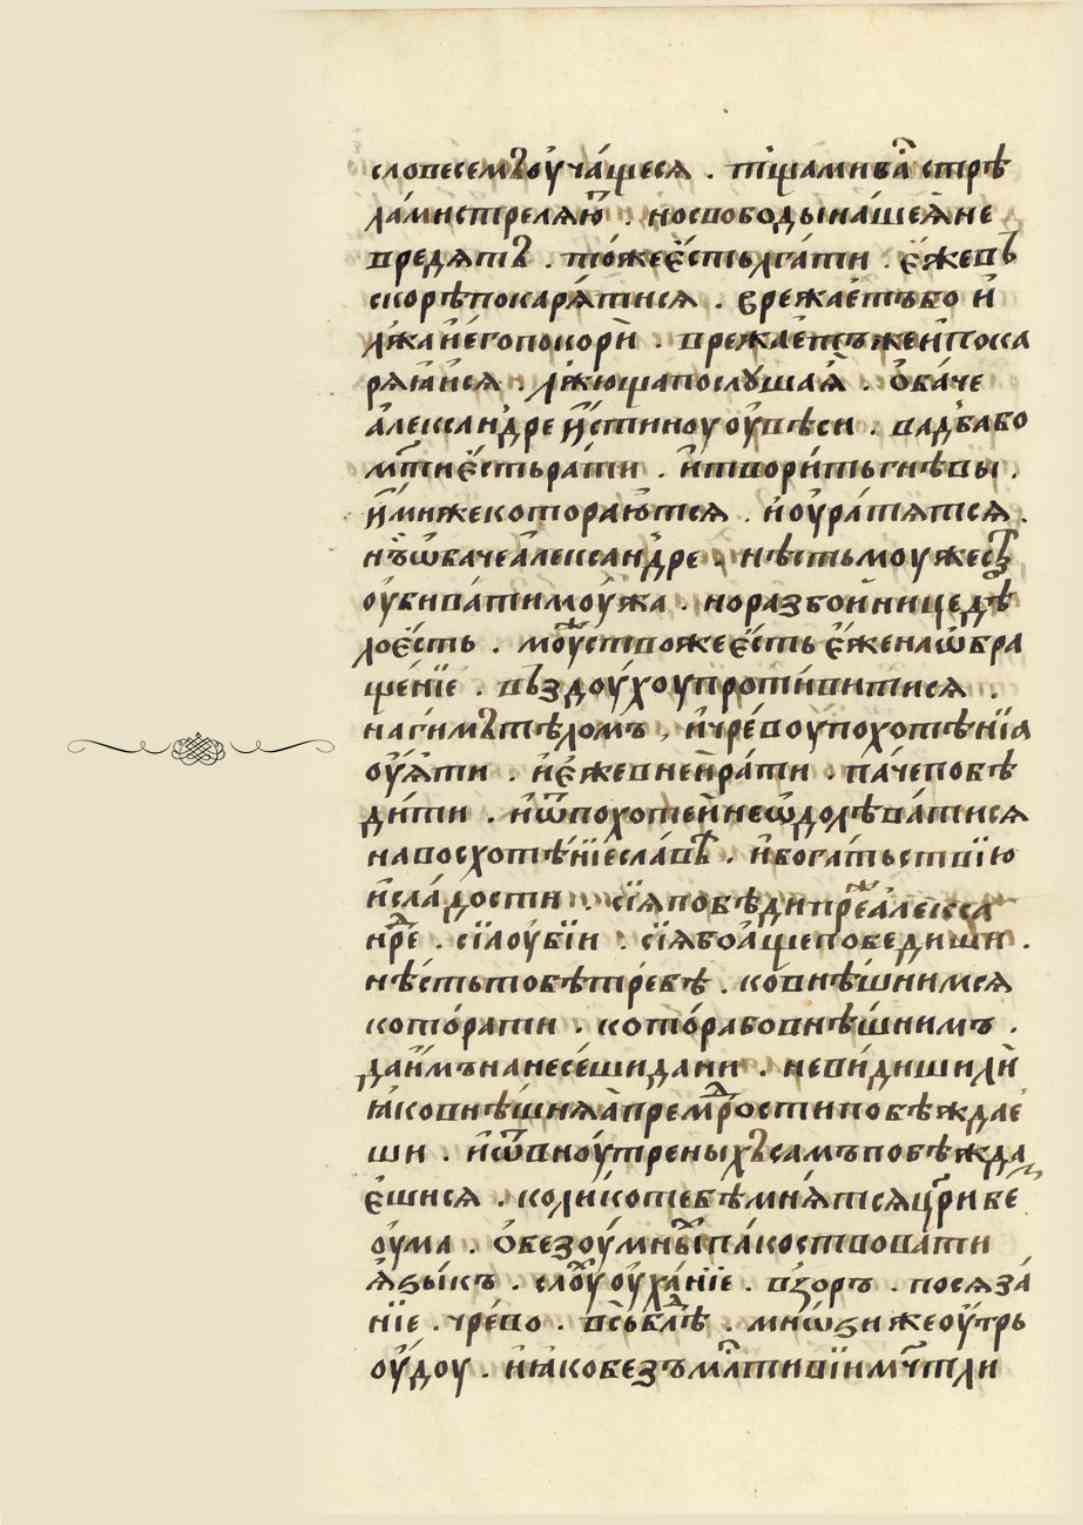 словесемъ оу҆ча́щеся . тща́ми ва̑ стрѣ
ла́ми стреляю҆̑ . но свободы на́шея҆ не
вредятъ . то́же є҆́сть лга́ти . є҆́же въ
скорѣ покаря́тися . врежае́тъ бо и҆
лжа́ и҆ не́го покори̇̀ . врежае́тъ же и҆ пока
ря́ѧ и҆ся . лжюща послушая҆ . ѻ҆ба́че
а҆леѯандре и҆́стиноу оу҆вѣси . вадба бо
м҃ти є҆́сть ра́ти . и҆ твори́ть гнѣвы .
и҆́миже котораю́тся . и҆ оу҆ра́тятся .
нъ ѡ҆баче а҆леѯандре . нѣсть моужес̑
оу҆бива́ти моу́жа . но разбойниче дѣ
ло є҆́сть . моу̑ство же є҆́сть є҆́же на ѡ҆бра
ще́нїе . въздоу́хоу противитися .
наги́мъ тѣломъ , и҆ чре́воу похотѣнїя
оу҆я́ти . и҆ є҆́же внеи̇ ра́ти . па́че побѣ
ди́ти . и҆ ѿ похоте́й не ѡ҆долѣва́тися
на восхотѣ́нїе сла́въ . и҆ бога́тьствїю
и҆ сла́дости . сїя побѣди пре́е а҆леѯа
нре̑ . сїа оу҆бїи . сїя бо а҆ще победиши .
нѣ́сть тобѣ тре́бѣ . ко внѣшнимся
кото́рати . кото́ра бо внѣ́шнимъ .
да и҆́мъ на несе́ши дани . не ви́диши ли̇
ꙗ҆ко внѣ́шняа̀ премрⷣости побѣждае́
ши . и҆ ѿ вноу́треныхъ самъ побѣжда
є҆шися . коли́ко тебѣ мня́тся цр҃и бе̾
оума . ѻ҆ безоу́мны̑и па́костовова́ти
ѧ҆зы́къ . слоу҆̑ оу҆ха́нїе . взоръ . посяза́
нїе . чре́во . всь блⷣѣ . мнѡ́зи же оу҆́трь
оу҆́доу . и҆ ꙗ҆ко безъ млⷭ҇тивїи мч҃тли